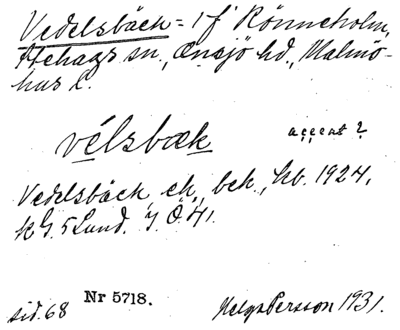 Vedelsbäck = 1 f Rönneholm,
Stehags sn., Onsjö hd., Malmö-
hus l.
vélsbæk accent 2
Vedelsbäck, ek, bek., kb. 1924,
k G. 5 Lund. Ö. 41.
sid. 68 Nr 5718. Helge Persson 1931.